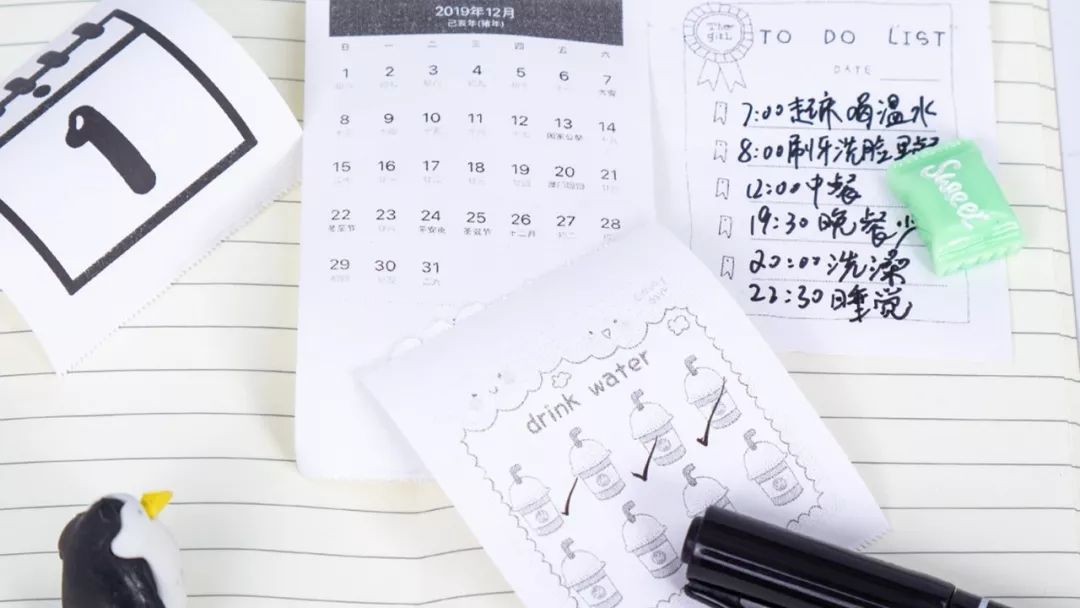 1
2019年12月
己亥年(猪年)
日 一 二 三 四 五 六
1 2 3 4 5 6 7
大雪
8 9 10 11 12 13 14
国家公祭
15 16 17 18 19 20 21
22 23 24 25 26 27 28
冬至节 平安夜 圣诞节
29 30 31
The girl
TO DO LIST
DATE
7:00起床喝温水
8:00刷牙洗脸
12:00中餐
19:30晚餐少
20:00洗澡
22:30睡觉
Sweet
drink water